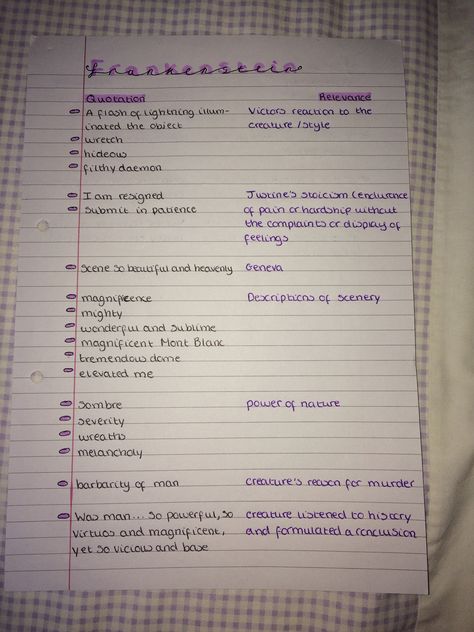 Frankenstein
Quotation Relevance
A flash of lightning illum- Victors reaction to the
inated the object creature/style
wretch
hideous
filthy daemon
I am resigned Justine's stoicism (endurance
submit in patience of pain or hardship without
the complaints or display of
feelings
scene so beautiful and heavenly Geneva
magnificence Descriptions of scenery
mighty
wonderful and sublime
magnificent Mont Blanc
tremendous dome
elevated me
sombre power of nature
severity
wreaths
melancholy
barbarity of man creature's reason for murder
Was man... so powerful, so creature listened to history
virtuos and magnificent, and formulated a conclusion
yet so vicious and base